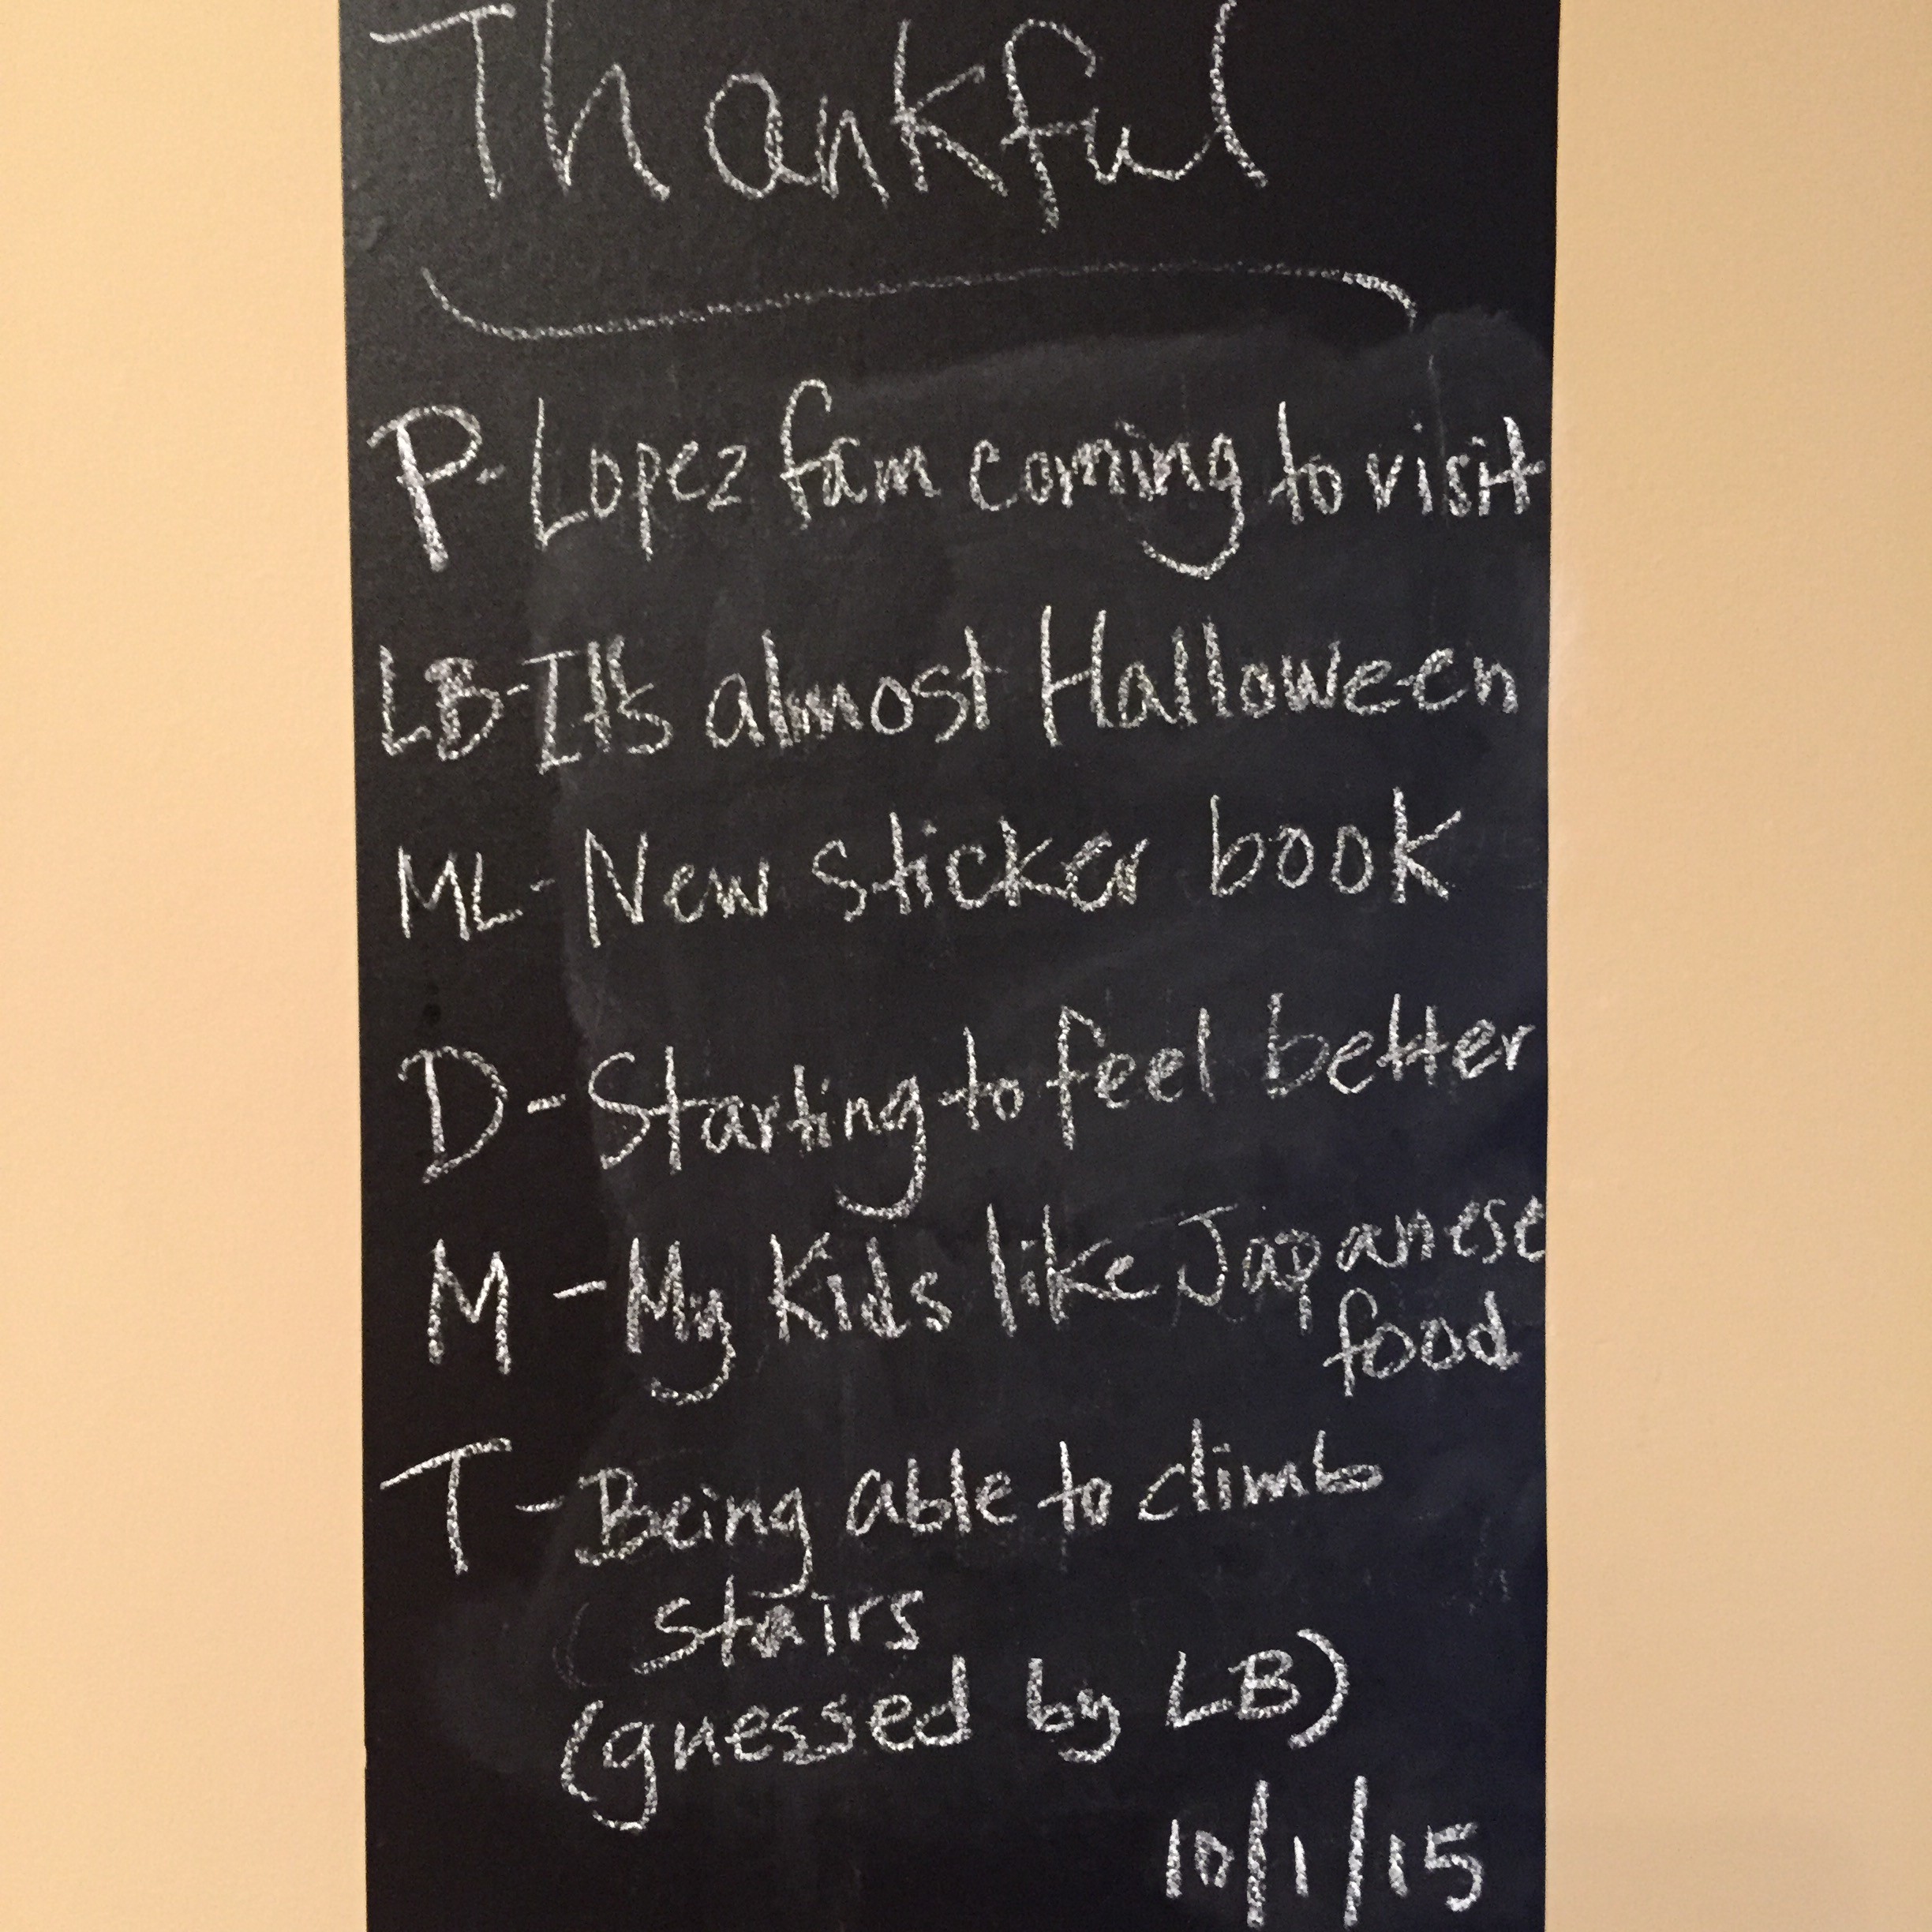 Thankful
P- Lopez fam coming to visit
LB- It's almost Halloween
ML- New sticker book
D- Starting to feel better
M - My kids like Japanese
food
T - Being able to climb
stairs
(guessed by LB)
10/1/15